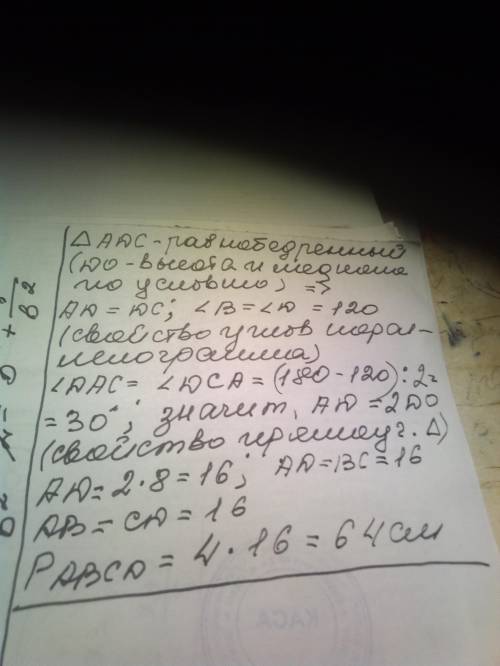 △ADC-равнобедренный
(DO-высота и медиана
по условию) =>
AD = DC; ∠B=∠D = 120
(свойство углов парал-
лелограмма)
∠DAC = ∠DCA = (180-120):2=
=30°; значит, AD=2DO
(свойство прямоуг. △)
AD = 2·8=16; AD=BC=16
AB = CD = 16
P ABCD = 4·16 = 64 см
КАСА